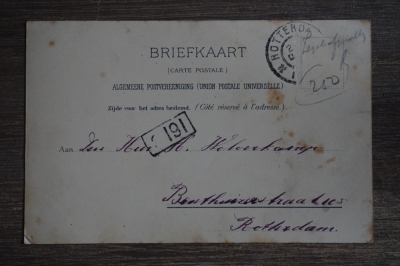 BRIEFKAART
(CARTE POSTALE)
ALGEMEENE POSTVEREENIGING (UNION POSTALE UNIVERSELLE)
Zijde voor het adres bestemd. (Côté réservé à l'adresse.)
ROTTERDA
191
250
Aan Den Heer A.
Rotterdam.